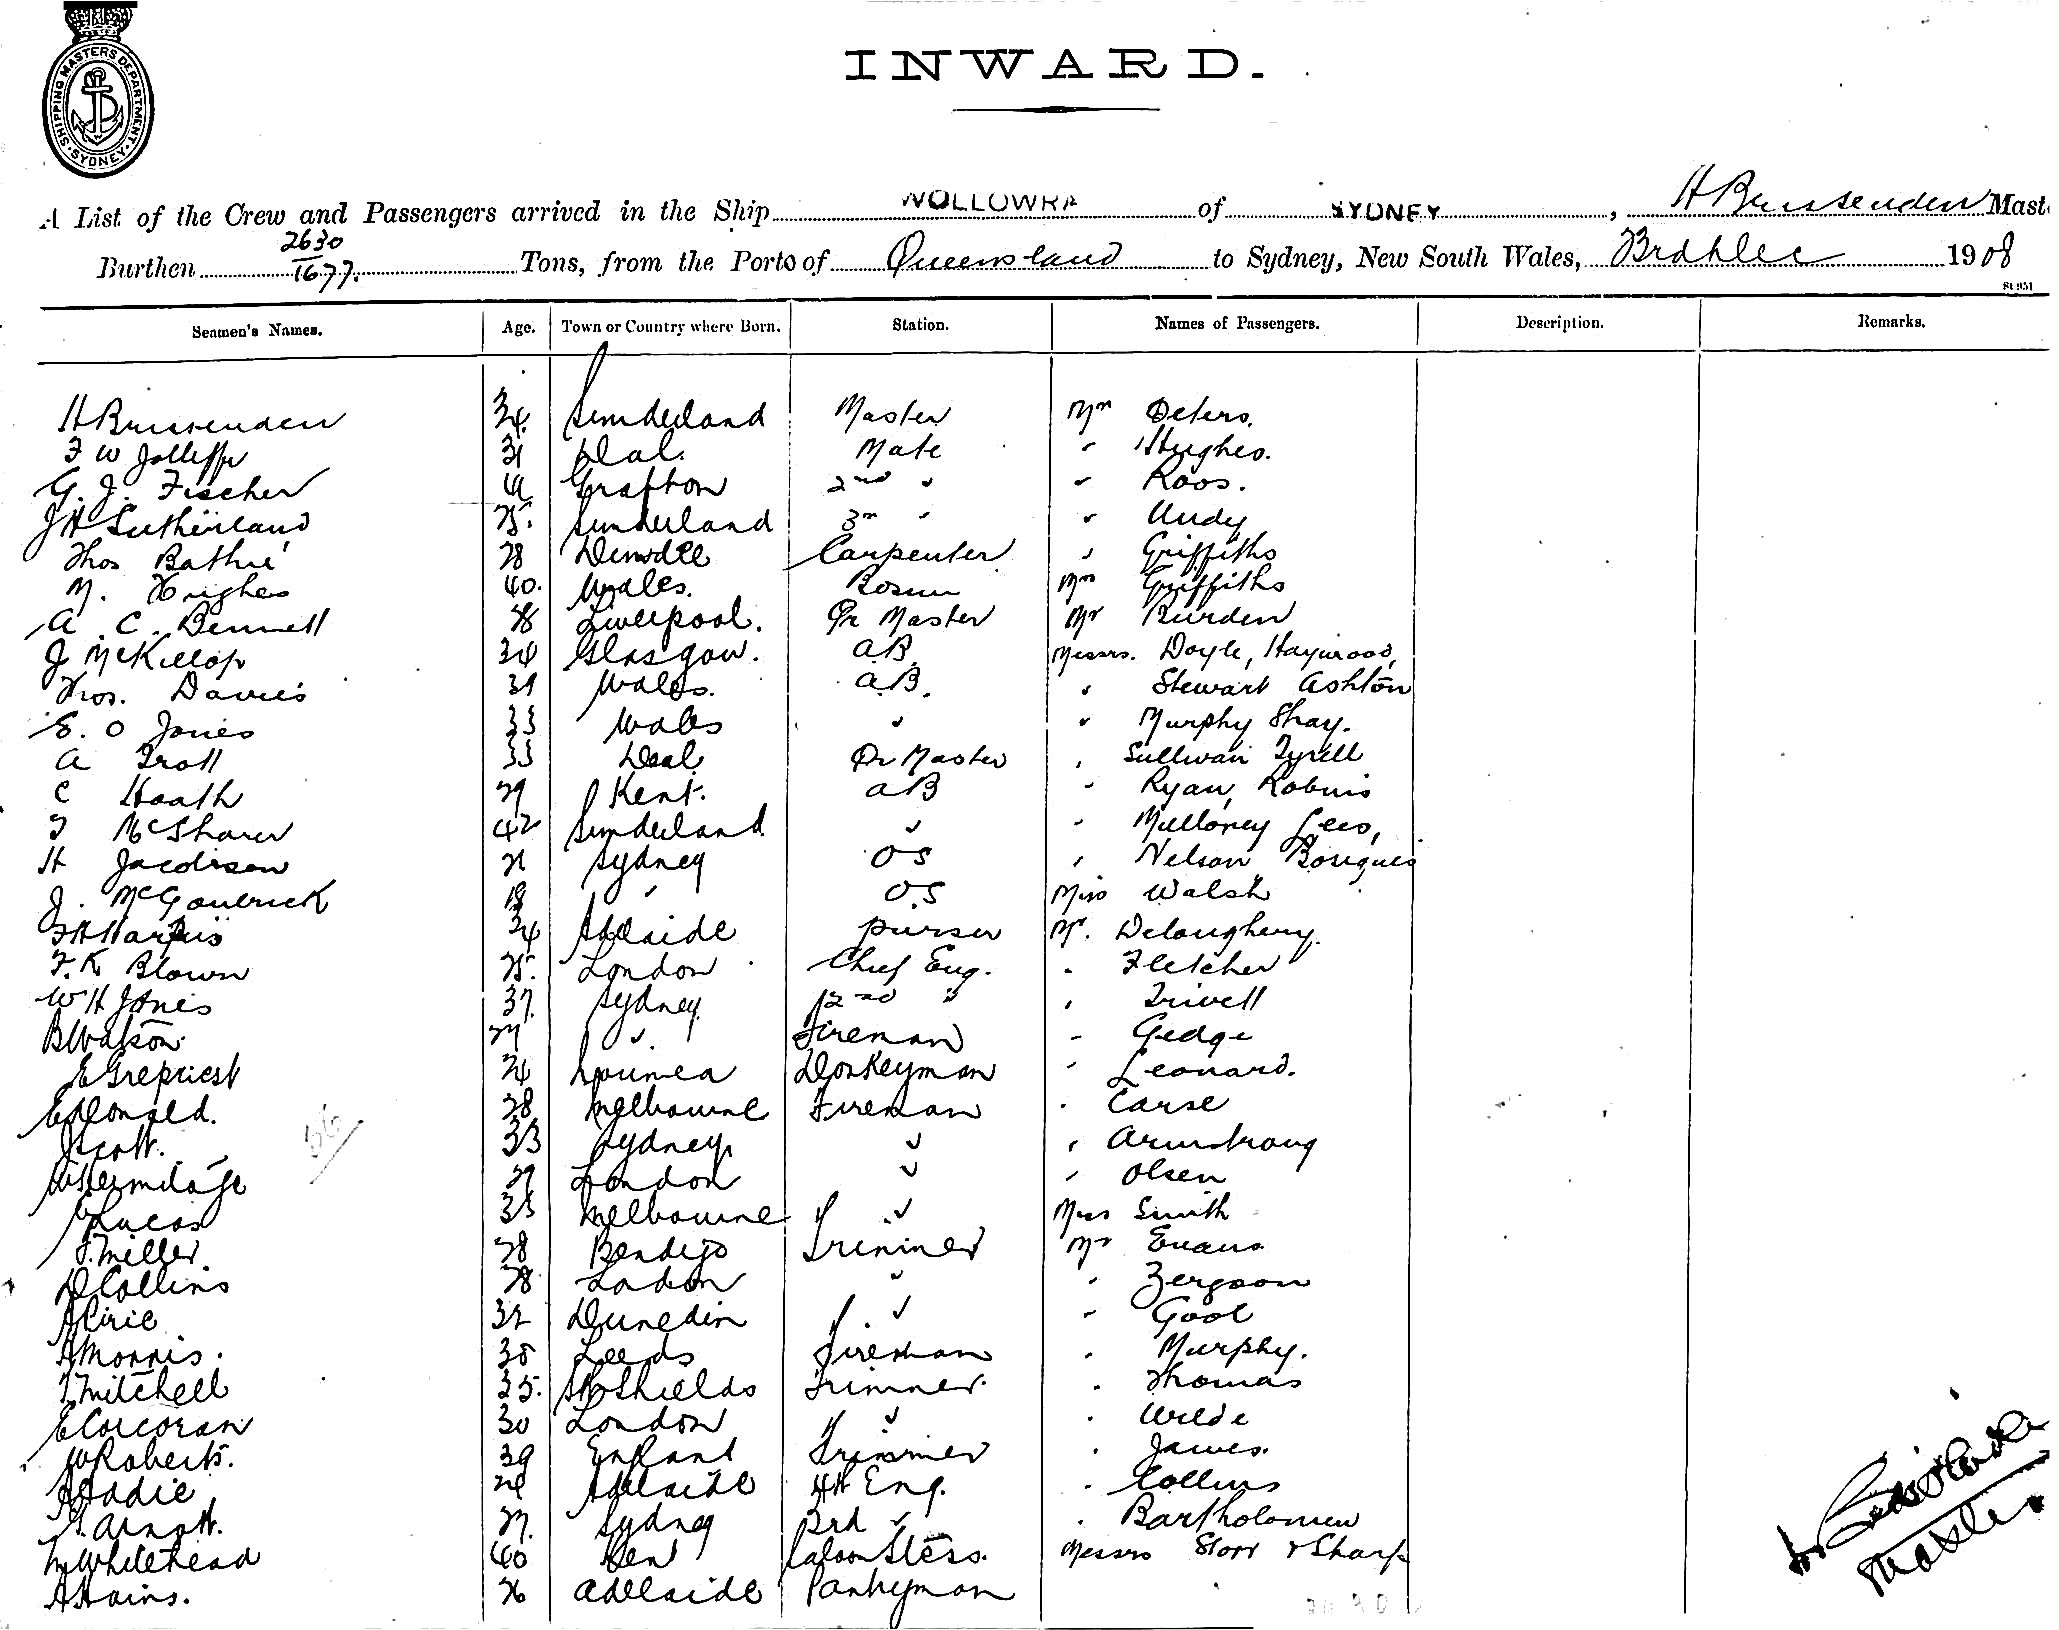 SHIPPING MASTERS DEPARTMENT. SYDNEY
INWARD.
A List of the Crew and Passengers arrived in the Ship WOLLOWRA of SYDNEY, H Brissenden Mast
Burthen 2630 / 1677. Tons, from the Ports of Queensland to Sydney, New South Wales, 1908
St 951
Seamen's Names. Age. Town or Country where Born. Station. Names of Passengers. Description. Remarks.
H Brissenden 34. Sunderland Master Mr Peters.
F W Jolliffe 31 Deal. Mate " Hughes.
G. J. Fischer Grafton 2nd " " Roos.
J H Sutherland 25. Sunderland 3rd " " Andy
Thos Bathie 28 Dundee Carpenter " Griffiths
M. Hughes 40. Wales. Bosun Mrs Griffiths
A. C. Bennett 28 Liverpool. Qr Master Mr Burden
J McKillop 34 Glasgow. A.B. Messrs. Doyle, Haywood,
Thos. Davies 39 Wales. A.B. " Stewart Ashton
E. O Jones 33 Wales " " Murphy Shay.
A Trott 33 Deal Qr Master " Sullivan Tyrell
C Hoath 29 Kent. AB " Ryan, Robins
T McSharer 42 Sunderland " " Mulloney Lees,
H Jacobson 21 Sydney OS " Nelson
J. McGoulrick 19 " O.S Miss Walsh
Harris 24 Adelaide purser Mr. Deloughery.
F. K Blown 25. London Chief Eng. " Fletcher
W H Jones 37. Sydney 2nd " " Trivell
B Watson 27 " Fireman " Gedge
E Grepriest 24 Noumea Donkeyman " Leonard.
E Donald. 28 Melbourne Fireman " Carse
J Scott. 33 Sydney " " Armstrong
W Hermitage 29 London " " Olsen
Lucas 33 Melbourne " Miss Smith
J. Miller 28 Bendigo Trimmer Mr Evans
D Collins 28 London " " Zergoon
A Cirie 32 Dunedin " " Gool
A Morris. 38 Leeds Fireman " Murphy.
T. Mitchell 35. Sth Shields Trimmer " Thomas
E Corcoran 30 London " " Wilde
W Roberts. 39 England Trimmer " James.
Eadie 24 Adelaide 4th Eng. " Collins
Arnott. 27. Sydney 3rd " " Bartholomew
M Whitehead 40 Saloon Stess. Messrs Storr & Sharp
A Hains. 26 Adelaide Pantryman
H Brissenden
Master